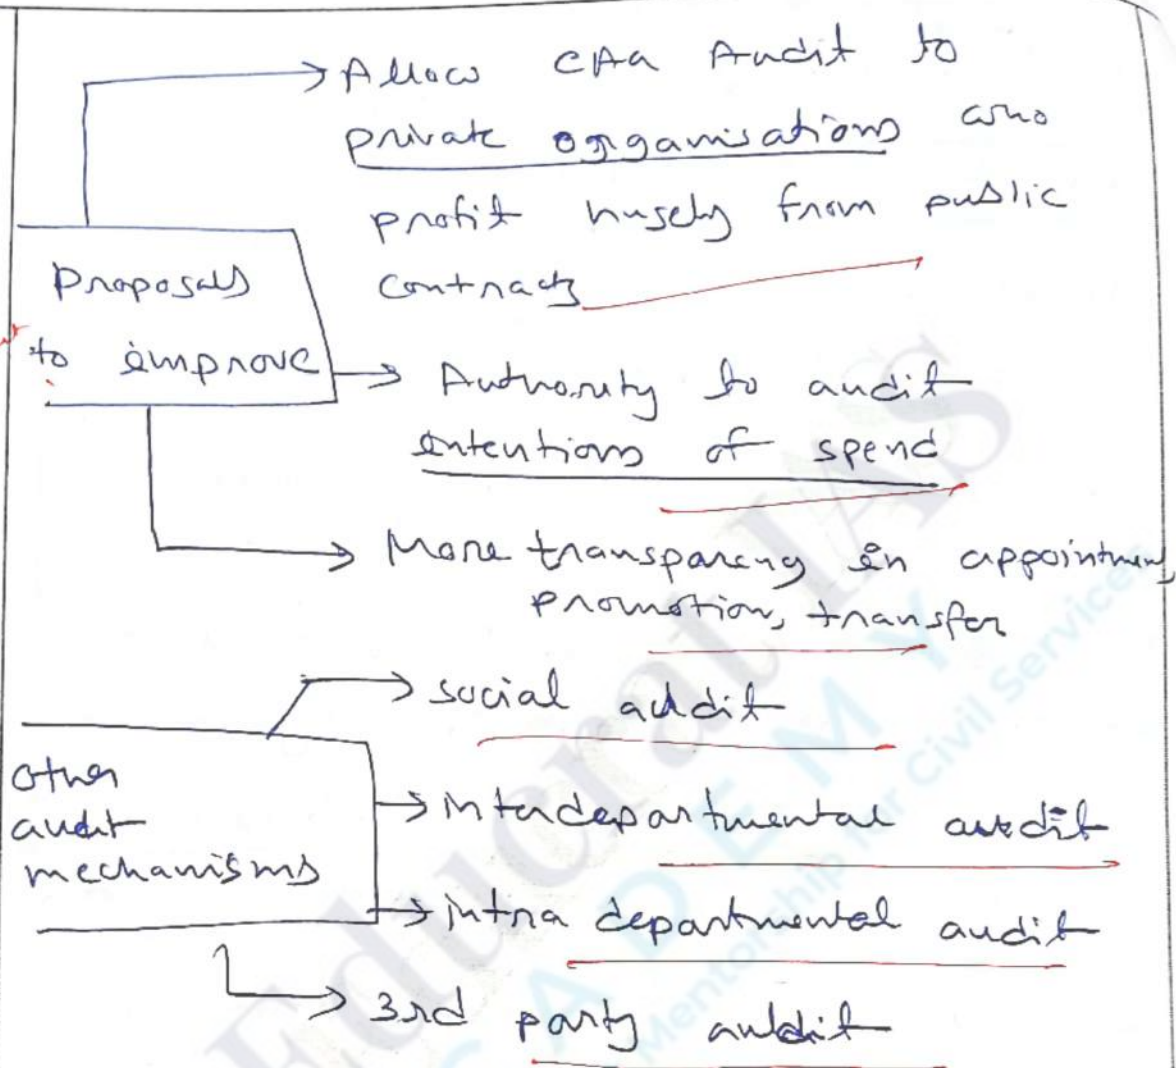 Allow CAG Audit to
private organisations who
profit hugely from public
contracts
Proposals
to improve
Authority to audit
intentions of spend
More transparency in appointment,
promotion, transfer
social audit
Other
audit
mechanisms
interdepartmental audit
intra departmental audit
3rd party audit
Educrat IAS
ACADEMY
Mentorship for Civil Services